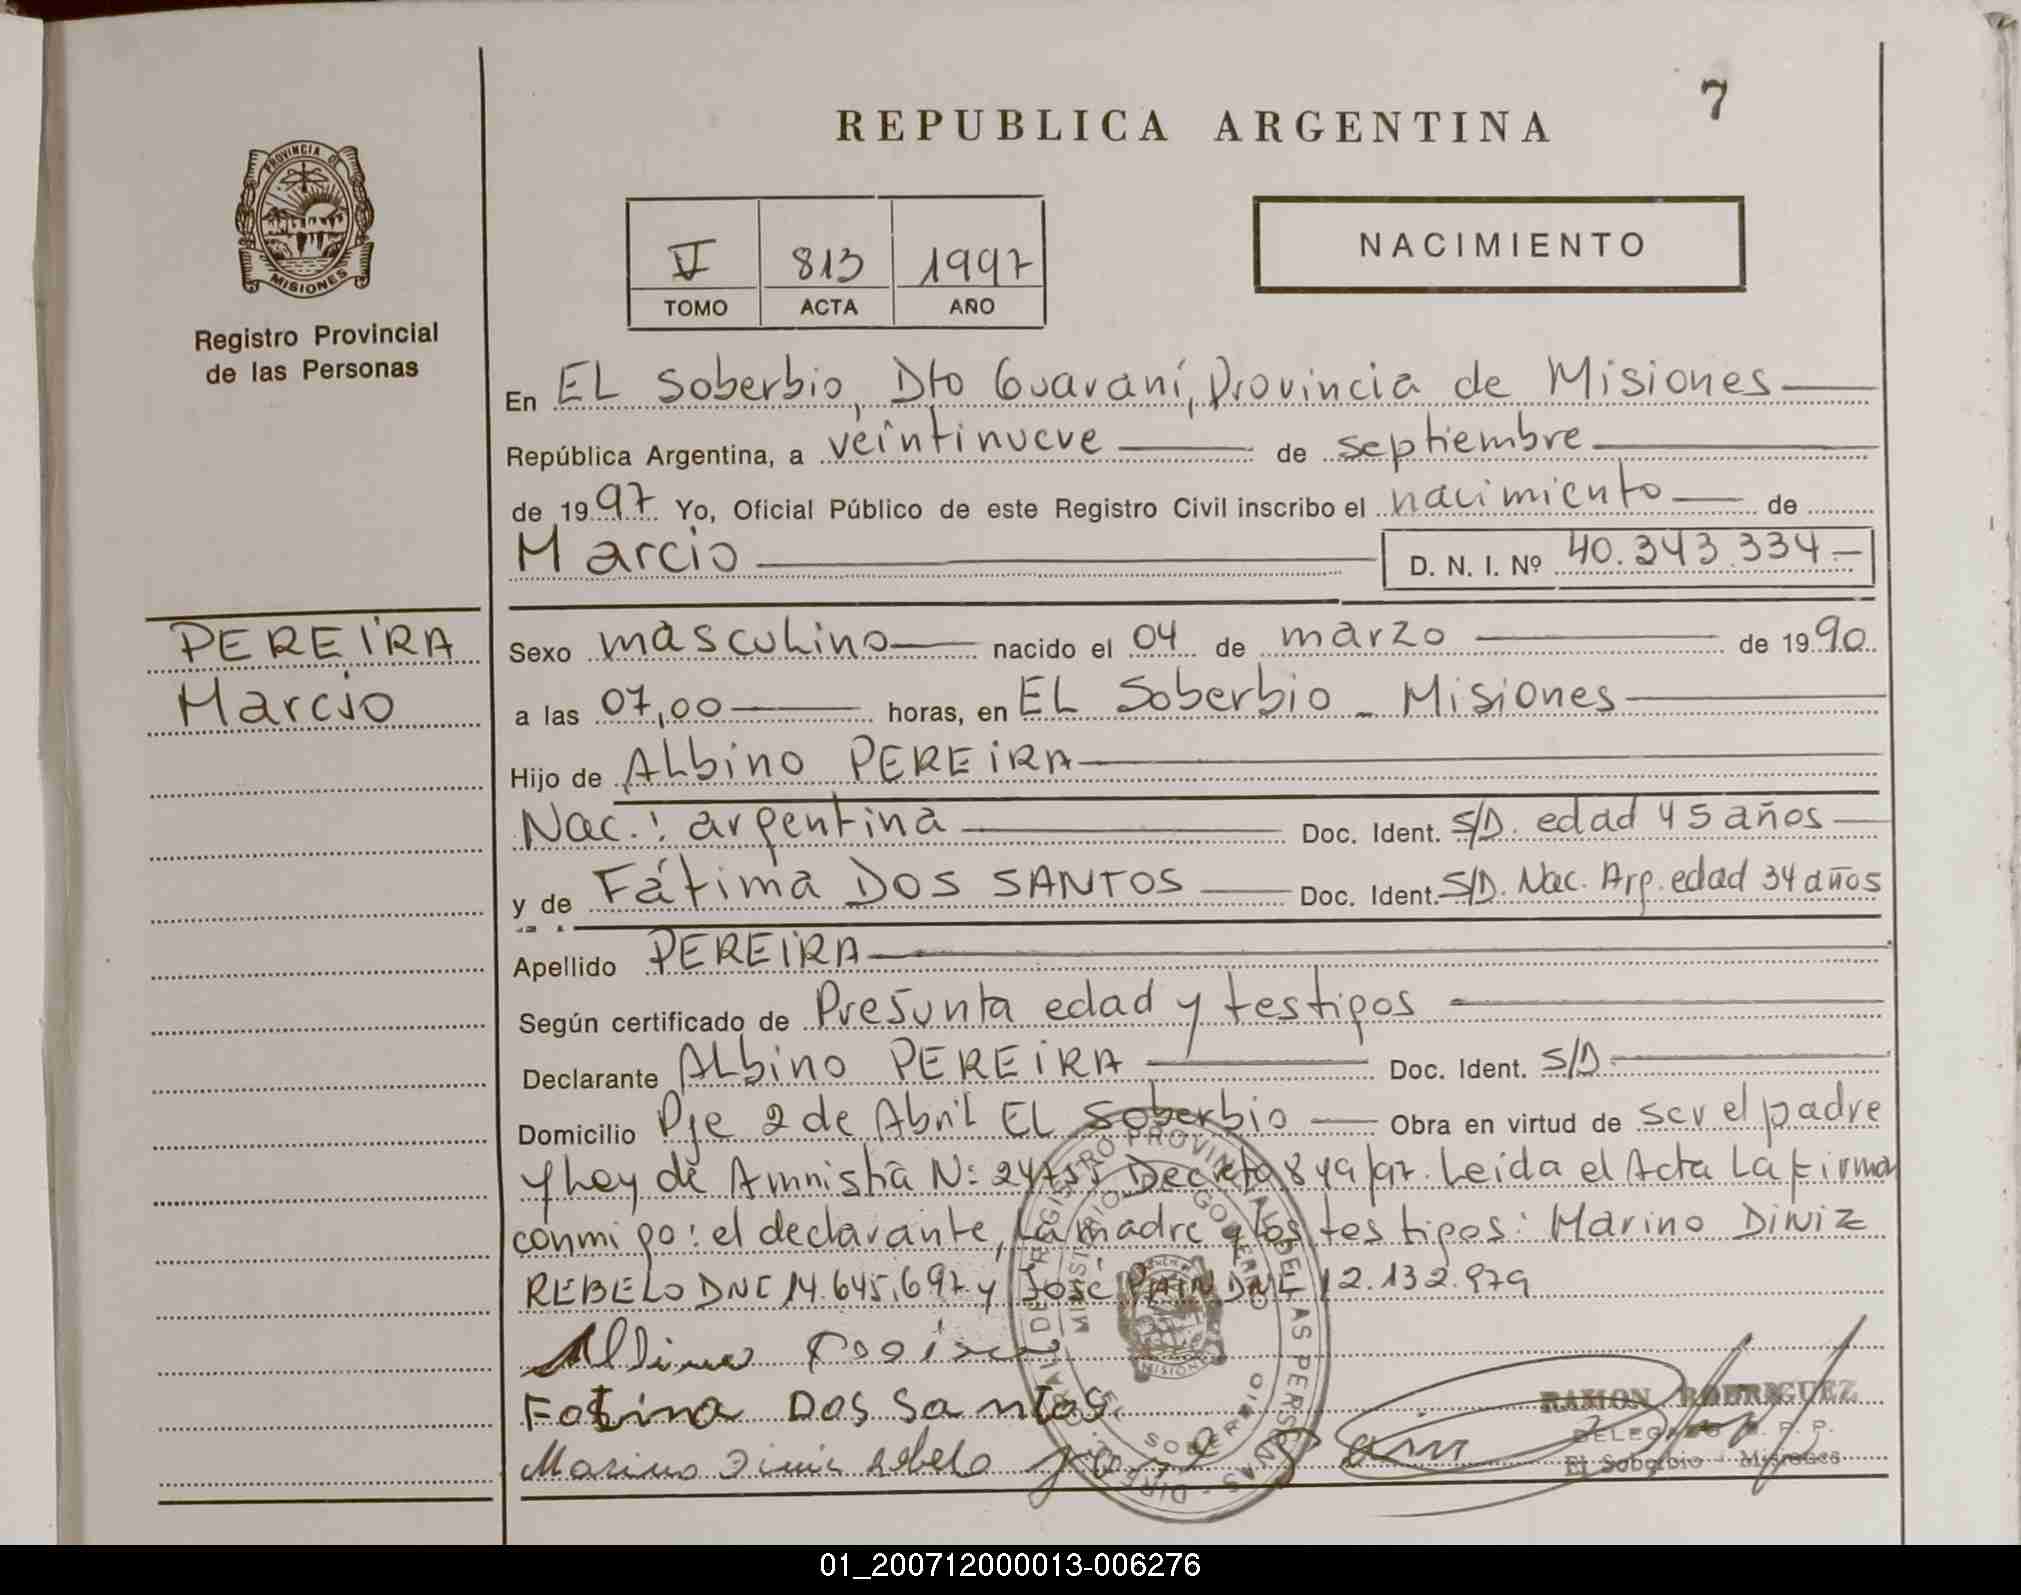 7
REPUBLICA ARGENTINA
PROVINCIA DE
MISIONES
Registro Provincial
de las Personas
V 813 1997
TOMO ACTA AÑO
NACIMIENTO
En EL Soberbio, Dto Guaraní, Provincia de Misiones
República Argentina, a veintinueve de septiembre
de 1997 Yo, Oficial Público de este Registro Civil inscribo el nacimiento de
Marcio D. N. I. Nº 40.343.334.-
PEREIRA
Marcio
Sexo masculino nacido el 04 de marzo de 1990
a las 07,00 horas, en EL Soberbio - Misiones
Hijo de Albino PEREIRA
Nac.: argentina Doc. Ident. S/D. edad 45 años
y de Fátima DOS SANTOS Doc. Ident. S/D. Nac. Arg. edad 34 años
Apellido PEREIRA
Según certificado de Presunta edad y testigos
Declarante Albino PEREIRA Doc. Ident. S/D
Domicilio Pje 2 de Abril EL Soberbio Obra en virtud de ser el padre
y Ley de Amnistía N: 24755 Decreto 849/97. Leída el Acta La firma
conmigo: el declarante, La madre y los testigos: Marino DINIZ
REBELO DNI 14.645.697 y José PAIN DNI 12.132.979
Fatima Dos Santos.
Marino Diniz Rebelo
RAMON RODRIGUEZ
DELEGADO R. P. P.
El Soberbio - Misiones
01_200712000013-006276